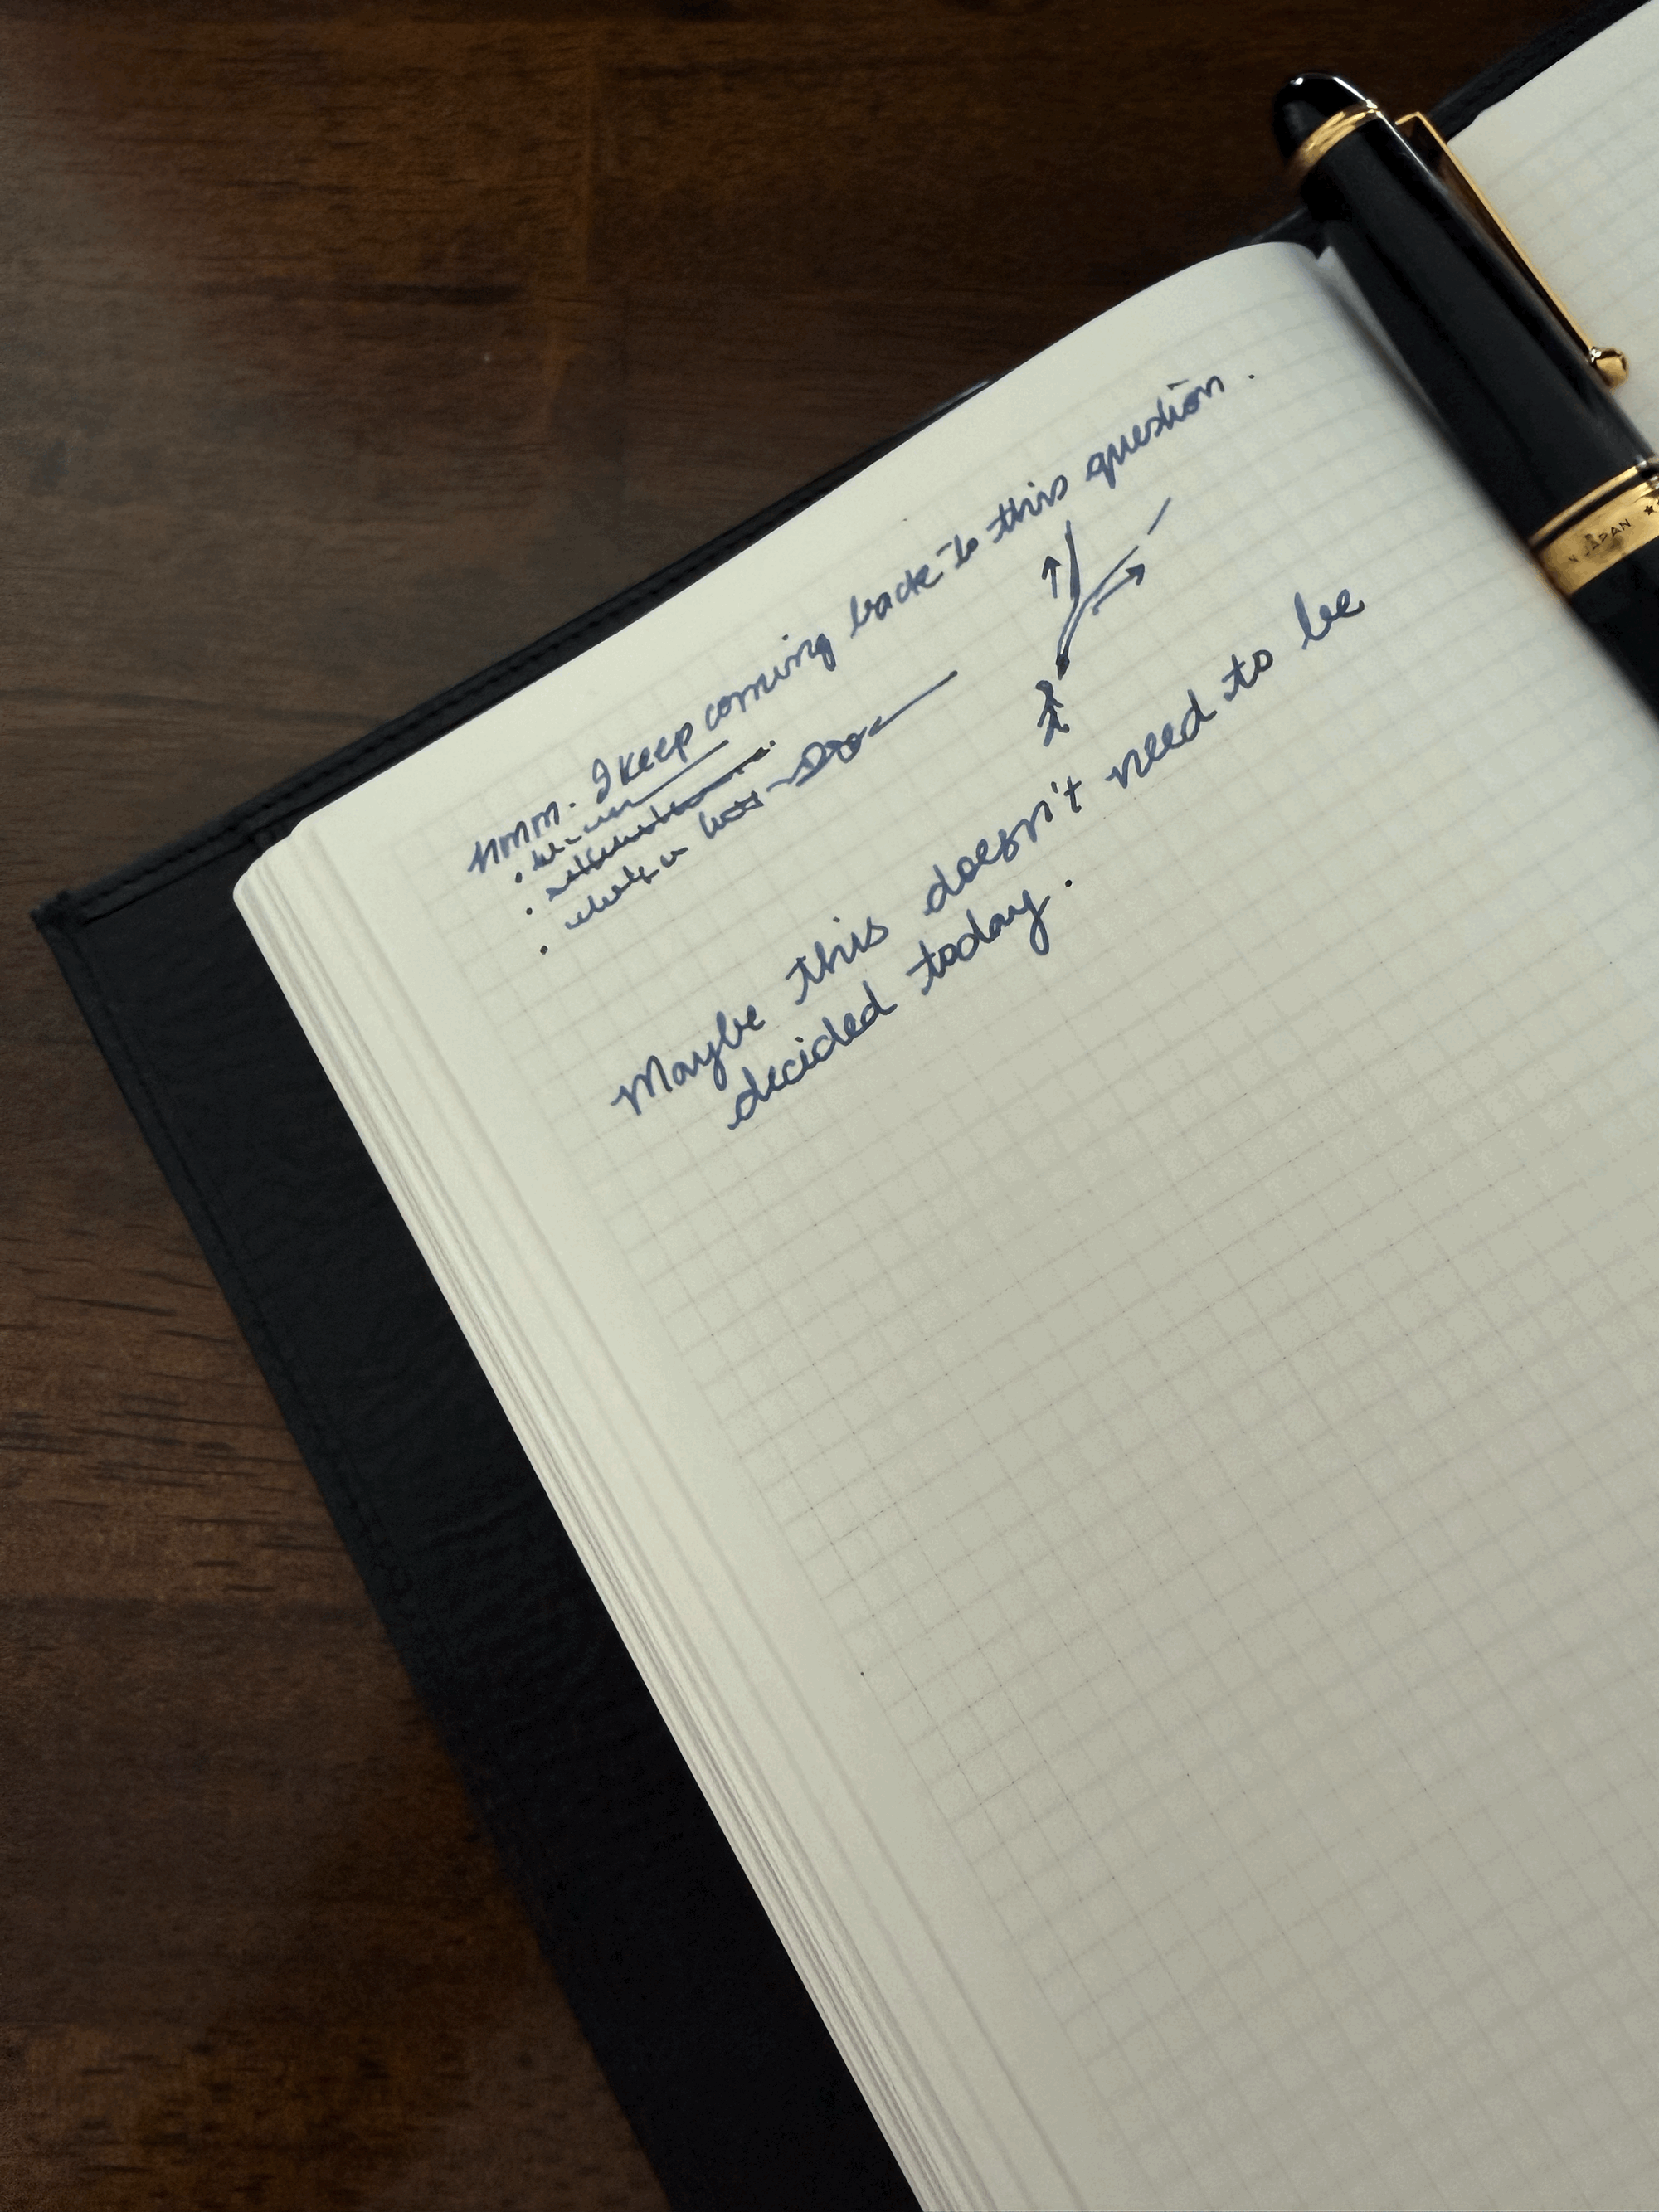 Hmm. I keep coming back to this question.
Maybe this doesn't need to be
decided today.
JAPAN